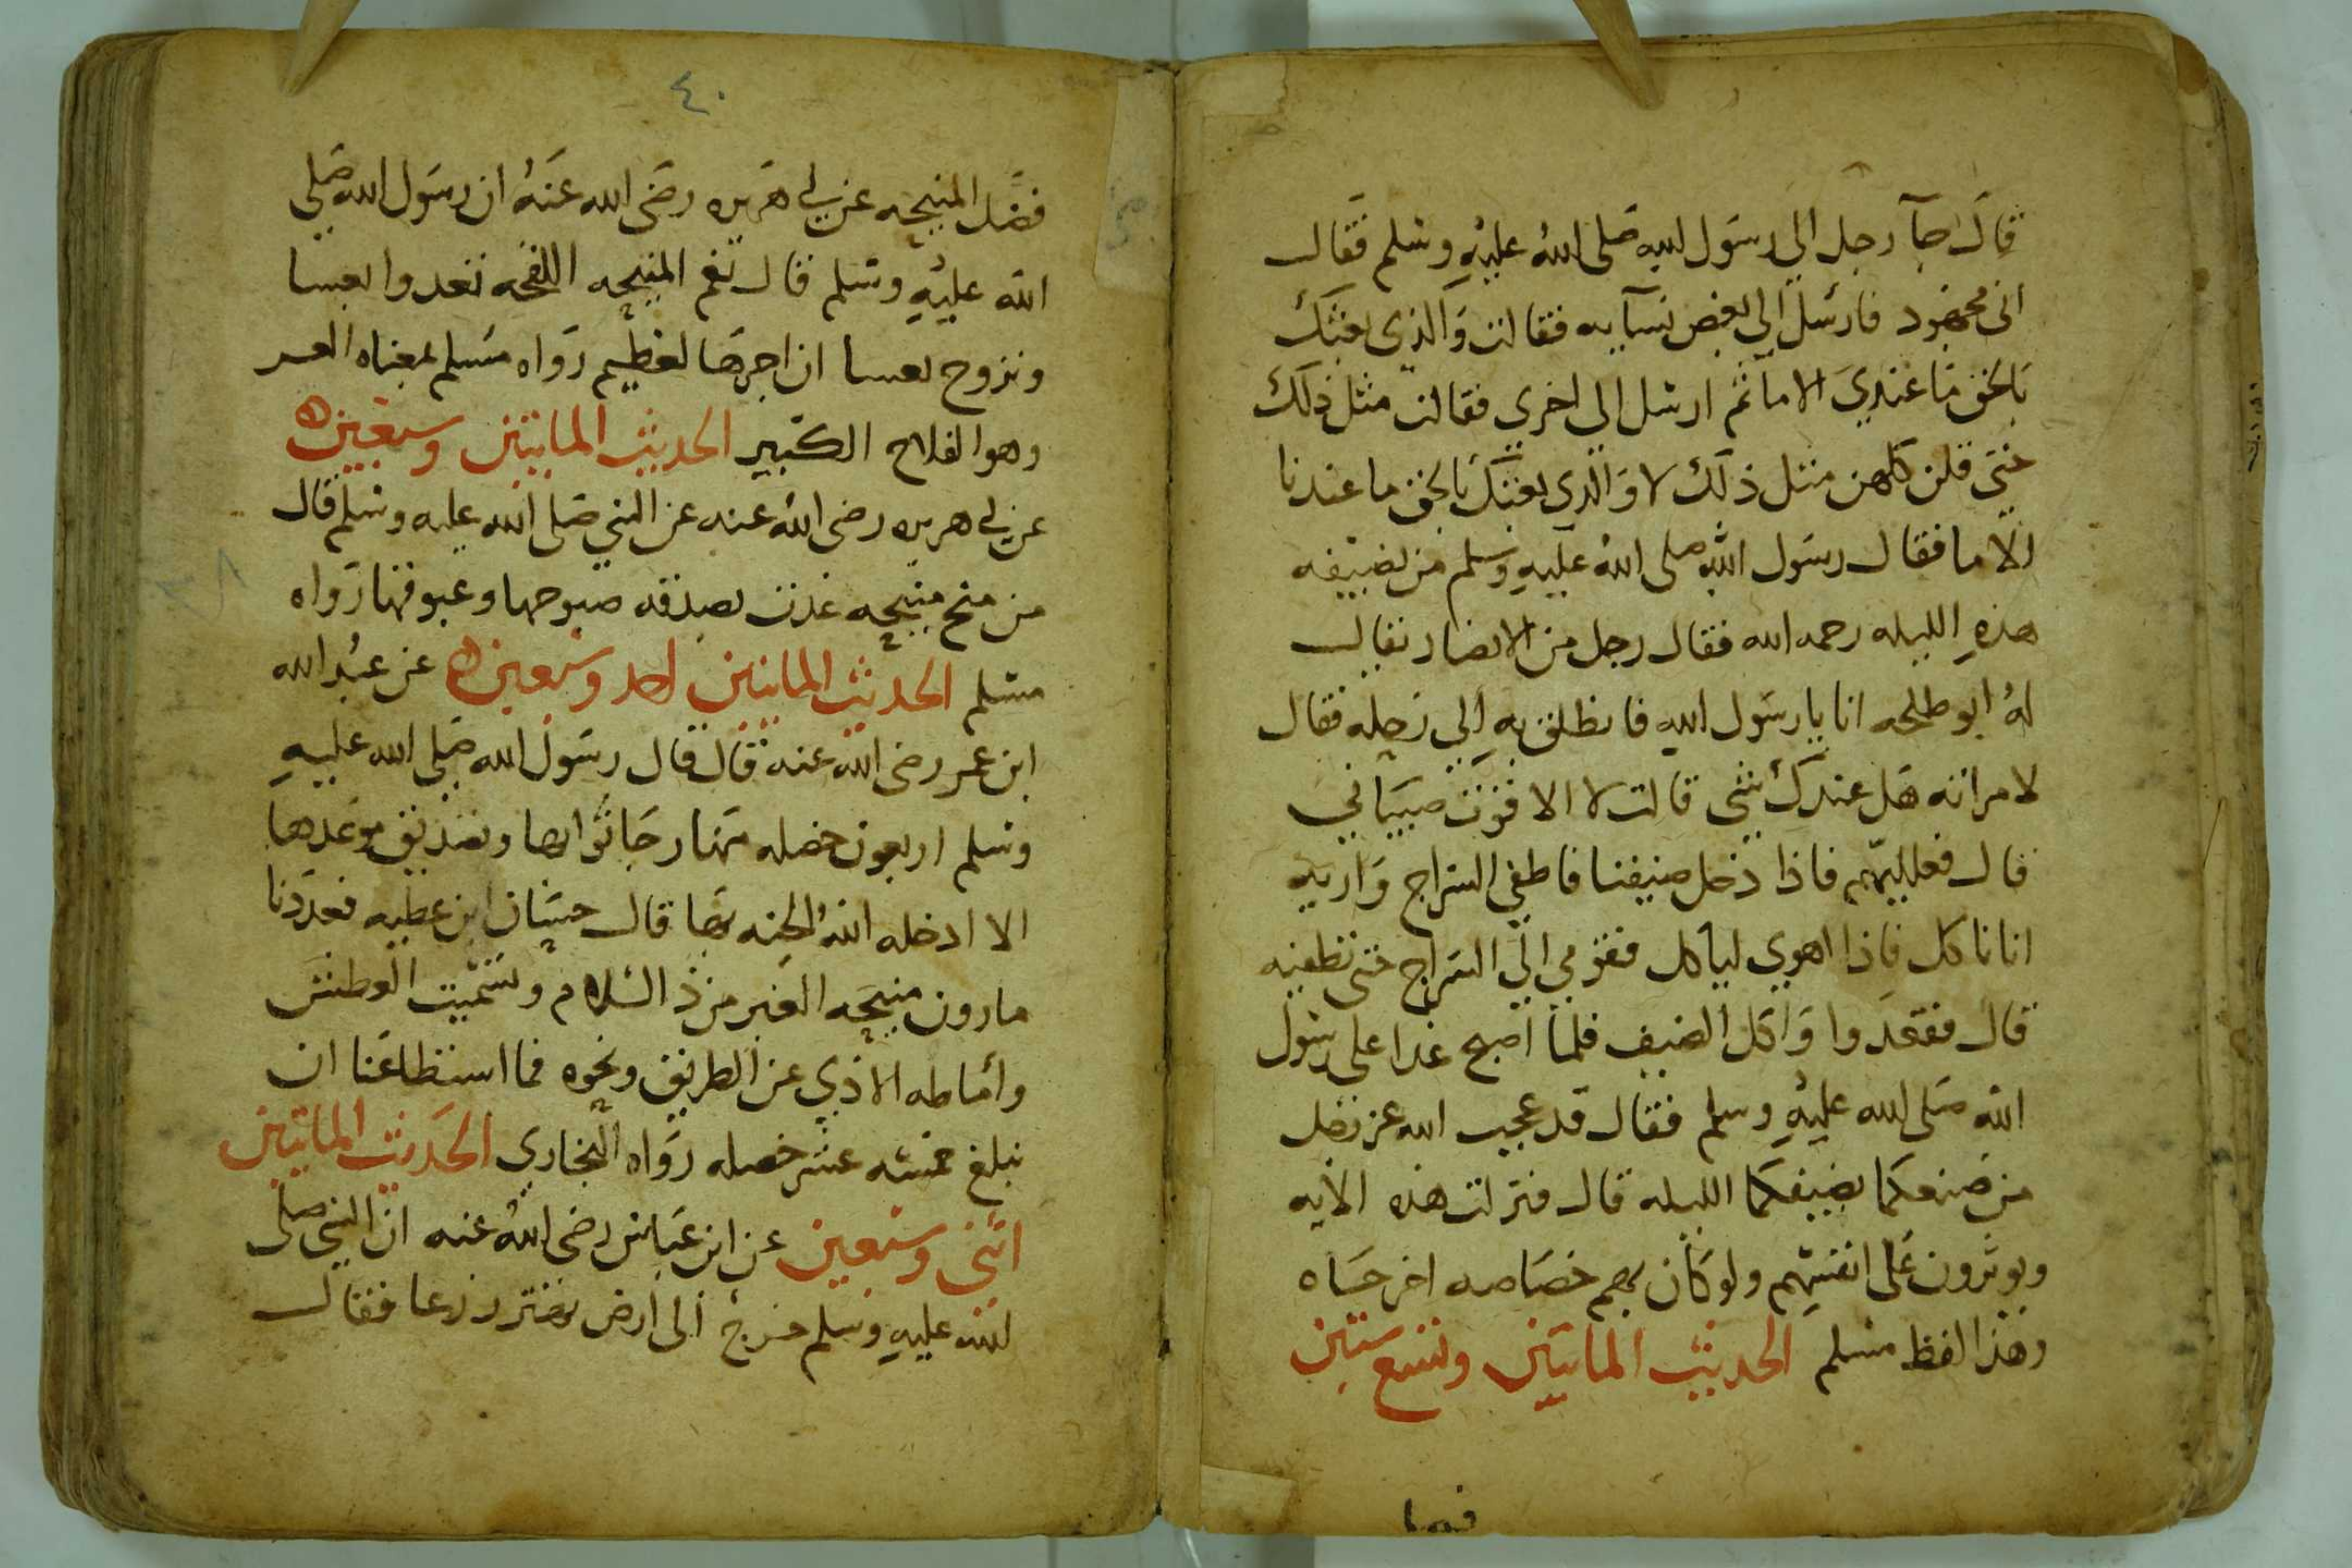 قال جآ رجل الي رسول الله صلى الله عليه وسلم فقال
انى مجهود فارسل الي بعض نسآيه فقالت والذي بعثك
بالحق ما عندي الا ما ثم ارسل الي اخري فقالت مثل ذلك
حتي قلن كلهن مثل ذلك لا والذي بعثك بالحق ما عندنا
الا ما فقال رسول الله صلى الله عليه وسلم من يضيفه
هذه الليله رحمه الله فقال رجل من الانصار يقال
له ابو طلحه انا يا رسول الله فانطلق به الي رحله فقال
لامراته هل عندك شي قالت لا الا قوت صبياني
قال فعلليهم فاذا دخل ضيفنا فاطفي السراج واريه
انا ناكل فاذا اهوي لياكل فقومي الي السراج حتى تطفيه
قال فقعدوا واكل الضيف فلما اصبح غدا على رسول
الله صلى الله عليه وسلم فقال قد عجب الله عز وجل
من صنعكما بضيفكما الليله قال فنزلت هذه الايه
ويوثرون على انفسهم ولو كان بهم خصاصه اخرجاه
وهذا لفظ مسلم الحديث المايتين وتسع ستين
فضل المنيحه عن ابي هريره رضى الله عنه ان رسول الله صلى
الله عليه وسلم قال نعم المنيحه اللقحه تغدوا بعسا
وتروح بعسا ان اجرها لعظيم رواه مسلم بمعناه العس
وهو القدح الكبير الحديث المايتين وسبعين
عن ابي هريره رضى الله عنه عن النبي صلى الله عليه وسلم قال
من منح منيحه غدت بصدقه صبوحها وغبوقها رواه
مسلم الحديث المايتين احد وسبعين عن عبد الله
ابن عمر رضى الله عنه قال قال رسول الله صلى الله عليه
وسلم اربعون خصله منها رجا ثوابها وتصديق موعدها
الا ادخله الله الجنه بها قال حسان ابن عطيه فعددنا
ما دون منيحه العنز من رد السلام وتشميت العطش
وأماطه الاذي عن الطريق ونحوه فما استطاعنا ان
نبلغ خمسه عشر خصله رواه البخاري الحديث المايتين
اثنى وسبعين عن ابن عباس رضى الله عنه ان النبي صلى
الله عليه وسلم خرج الى أرض تهتز زرعا فقال
٤٠